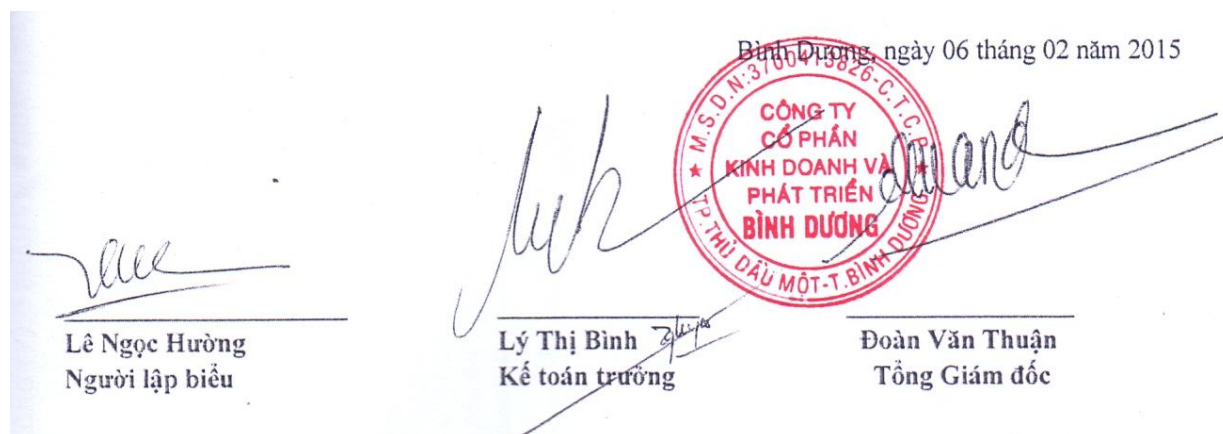 Bình Dương, ngày 06 tháng 02 năm 2015
★ M.S.D.N:3700413826-C.T.C.P ★
CÔNG TY
CỔ PHẦN
KINH DOANH VÀ
PHÁT TRIỂN
BÌNH DƯƠNG
TP.THỦ DẦU MỘT-T.BÌNH DƯƠNG
Lê Ngọc Hường
Người lập biểu
Lý Thị Bình
Kế toán trưởng
Đoàn Văn Thuận
Tổng Giám đốc